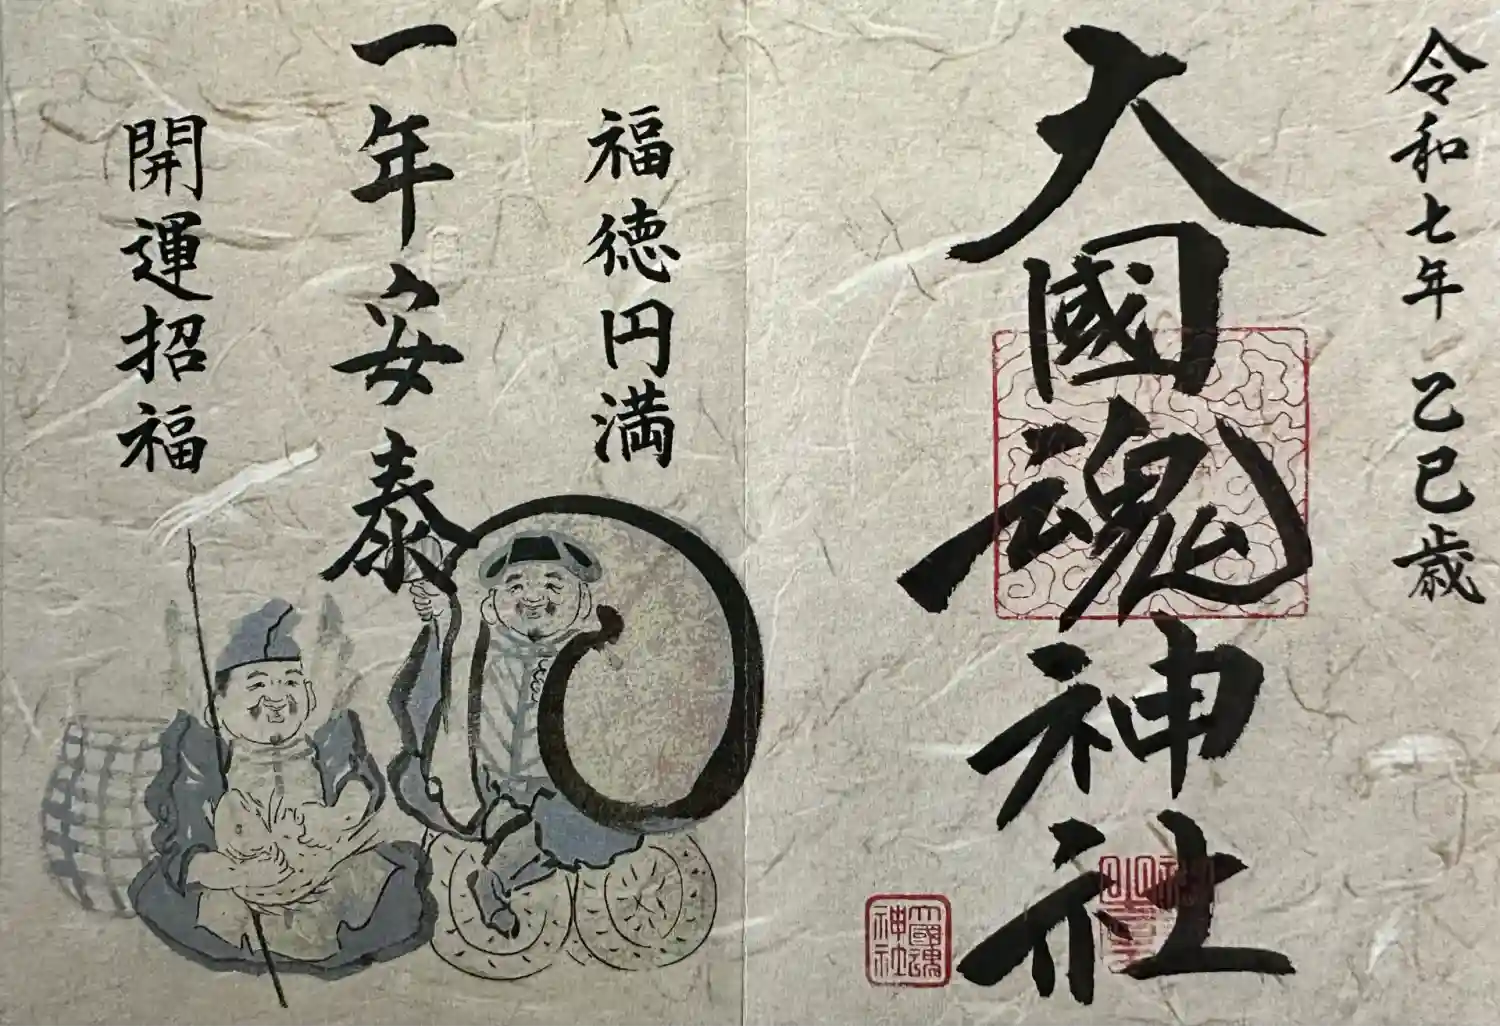 令和七年 乙巳歳
大國魂神社
大國魂
神社
福徳円満
一年安泰
開運招福